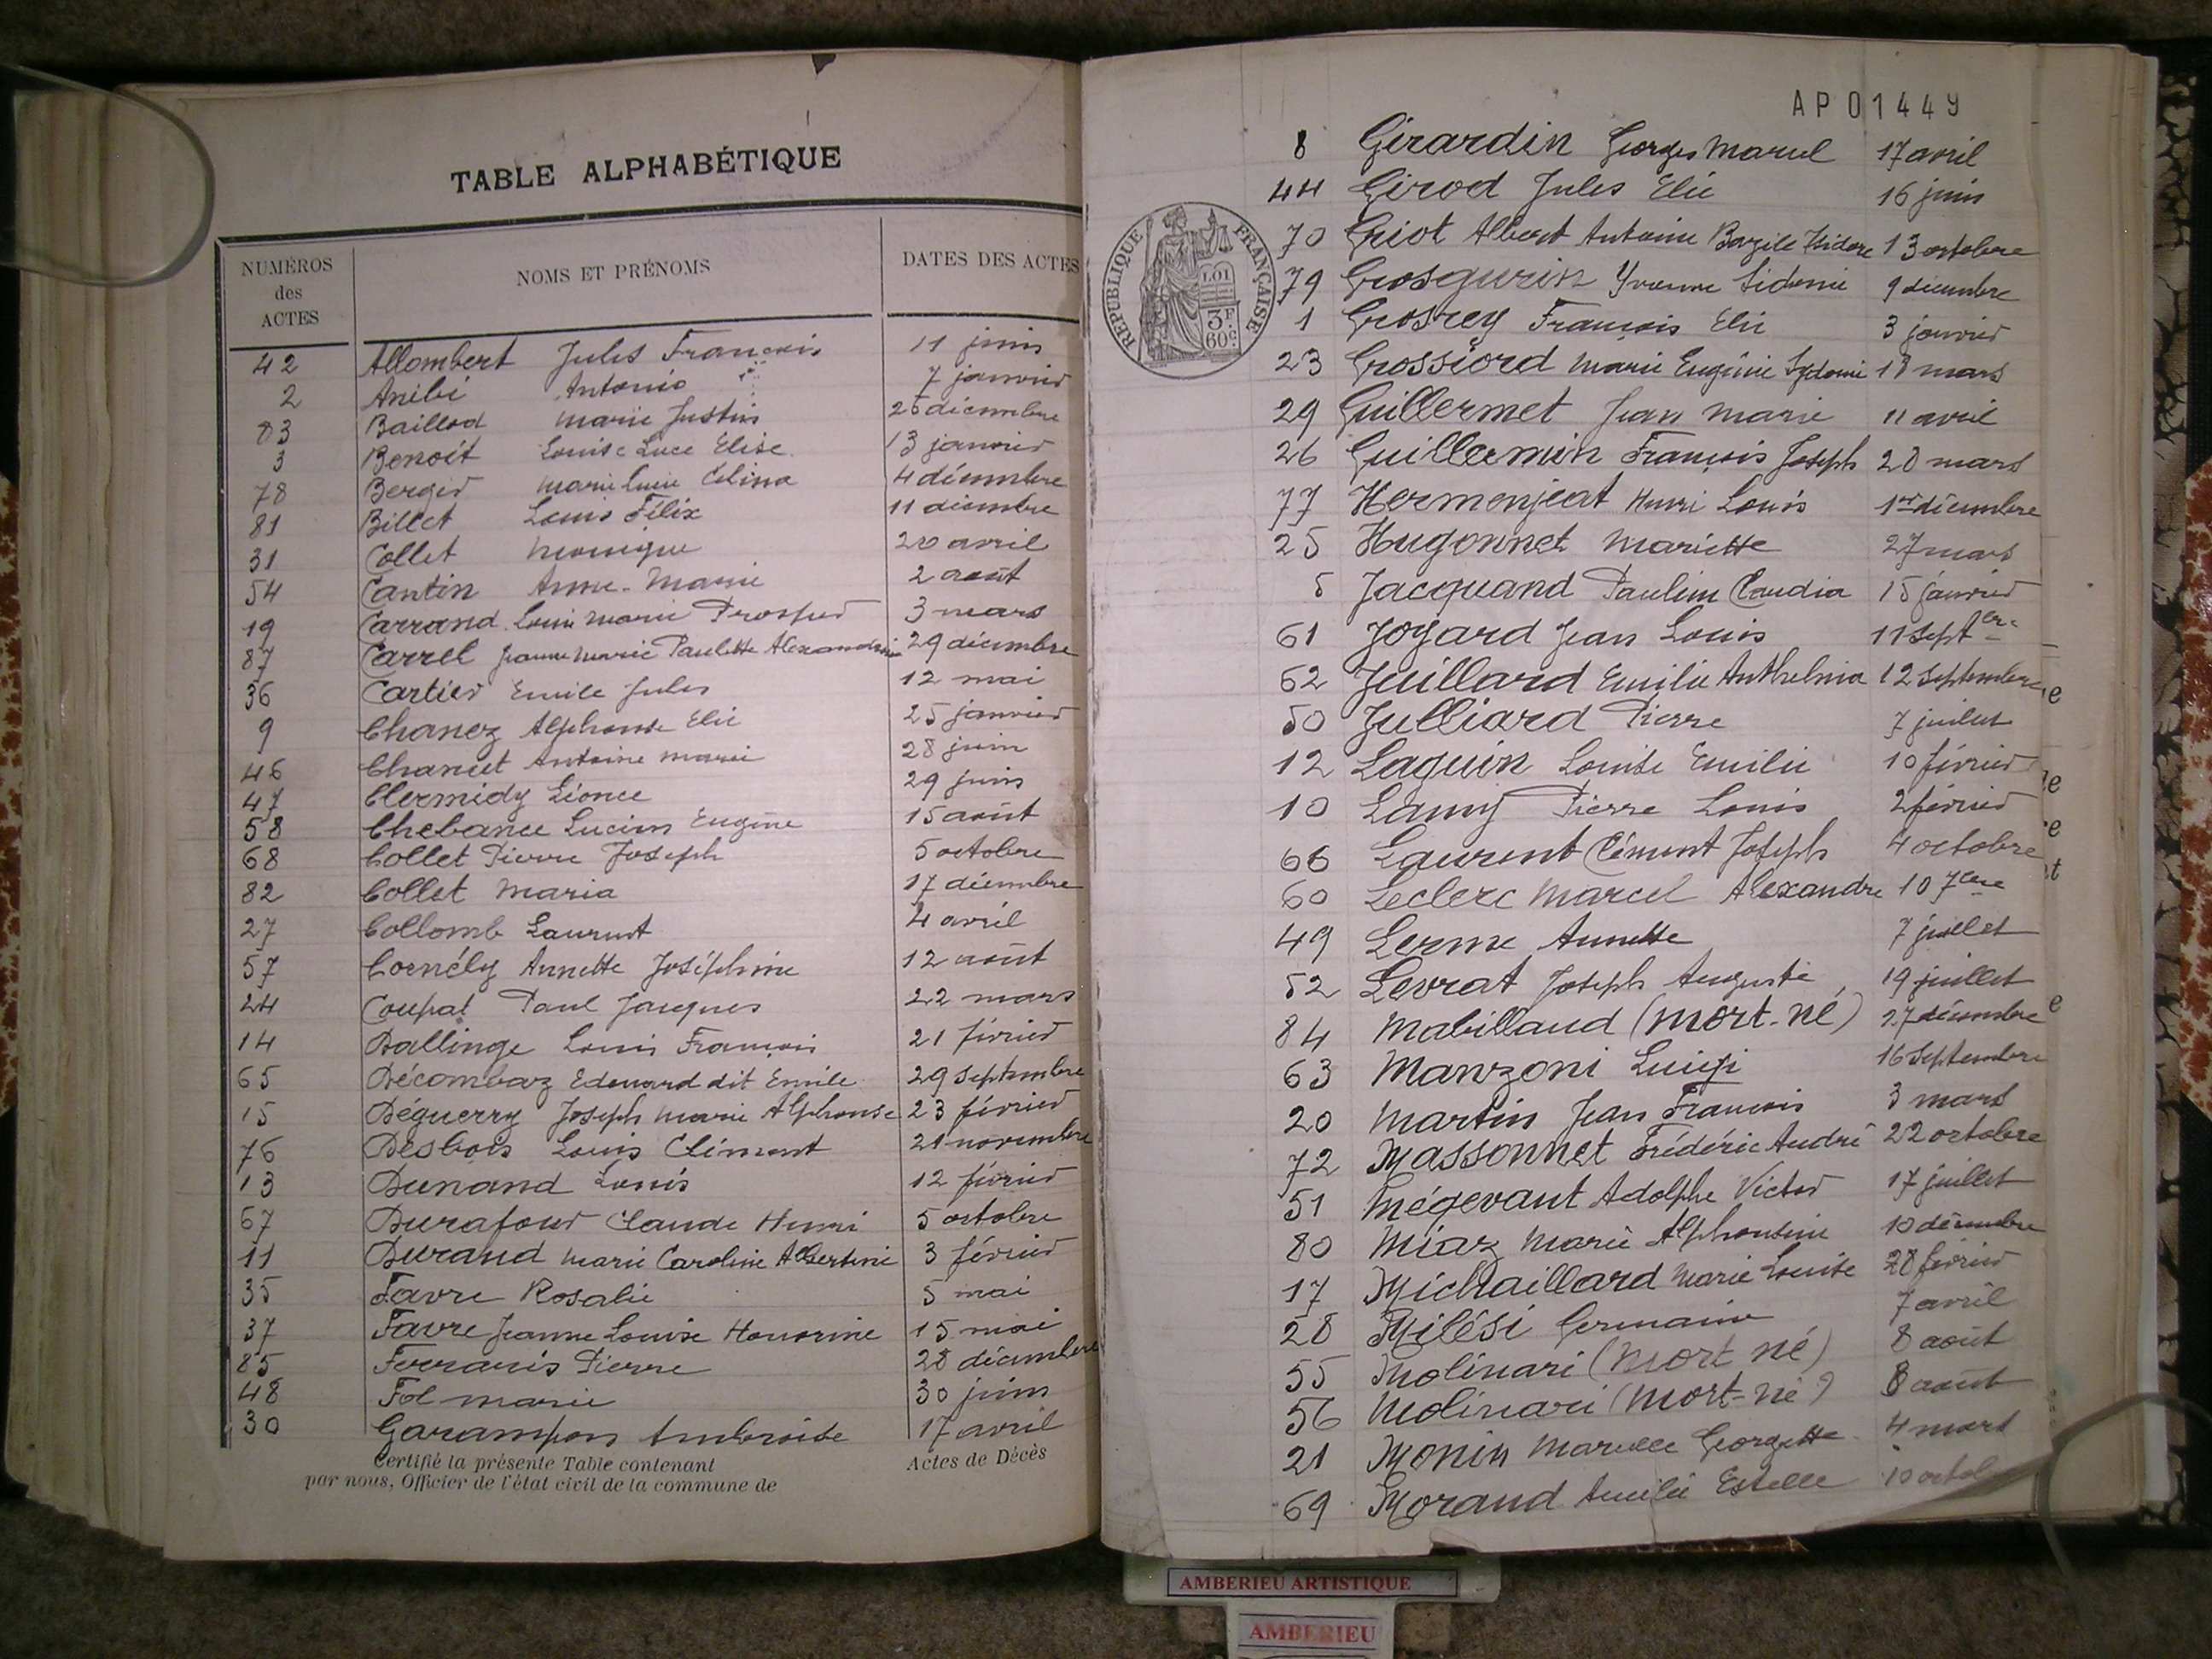 TABLE ALPHABÉTIQUE
NUMÉROS des ACTES
NOMS ET PRÉNOMS
DATES DES ACTES
42 Allombert Jules François 11 juin
2 Anibi Antonio 7 janvier
83 Baillod Marie Justin 26 décembre
3 Benoit Louise Luce Elise 13 janvier
78 Berger Marie Lucie Célina 4 décembre
81 Billet Louis Félix 11 décembre
31 Collet Monique 20 avril
54 Cantin Anne-Marie 2 août
19 Carrand Louis Marie Prosper 3 mars
87 Carrel Jeanne Marie Paulette Alexandrine 29 décembre
36 Cartier Emile Jules 12 mai
9 Chanez Alphonse Elie 25 janvier
46 Chanut Antoine Marie 28 juin
47 Clermidy Léonce 29 juin
58 Chebance Lucien Eugène 15 août
68 Collet Pierre Joseph 5 octobre
82 Collet Maria 17 décembre
27 Collomb Laurent 4 avril
57 Cornély Annette Joséphine 12 août
24 Coupat Paul Jacques 22 mars
14 Dallinge Louis François 21 février
65 Décombaz Edouard dit Emile 29 septembre
15 Déguerry Joseph Marie Alphonse 23 février
76 Desbois Louis Clément 21 novembre
13 Dunand Louis 12 février
67 Durafour Claude Henri 5 octobre
11 Durand Marie Caroline Albertine 3 février
35 Favre Rosalie 5 mai
37 Favre Jeanne Louise Honorine 15 mai
85 Ferraris Pierre 28 décembre
48 Fol Marie 30 juin
30 Garampon Ambroise 17 avril
Certifié la présente Table contenant Actes de Décès
par nous, Officier de l'état civil de la commune de
AP01449
RÉPUBLIQUE FRANÇAISE
LOI
3F.
60c.
8 Girardin Georges Marcel 17 avril
44 Girod Jules Elie 16 juin
70 Griot Albert Antoine Bazile Isidore 13 octobre
79 Grosgurin Yvonne Sidonie 9 décembre
1 Grosrey François Elie 3 janvier
23 Grossiord Marie Eugénie Sydonie 18 mars
29 Guillermet Jean Marie 11 avril
26 Guillermin François Joseph 28 mars
77 Hermenjeat Henri Louis 1er décembre
25 Hugonnet Mariette 27 mars
5 Jacquand Pauline Claudia 15 janvier
61 Joyard Jean Louis 11 Sept bre
62 Juillard Emilie Anthelmia 12 Septembre
50 Julliard Pierre 7 juillet
12 Laguin Louise Emilie 10 février
10 Lamy Pierre Louis 2 février
66 Laurent Clément Joseph 4 octobre
60 Leclerc Marcel Alexandre 10 7bre
49 Lerme Annette 7 juillet
52 Levrat Joseph Auguste 19 juillet
84 Mabilland (mort-né) 27 décembre
63 Manzoni Luigi 16 Septembre
20 Martin Jean François 3 mars
72 Massonnet Frédéric André 22 octobre
51 Mégevant Adolphe Victor 17 juillet
80 Miaz Marie Alphonsine 10 décembre
17 Michaillard Marie Louise 28 février
28 Milési Germain 7 avril
55 Molinari (mort né) 8 août
56 Molinari (mort-né) 8 août
21 Monin Marcelle Georgette 4 mars
69 Morand Amélie Estelle 10 octob
AMBERIEU ARTISTIQUE
AMBERIEU